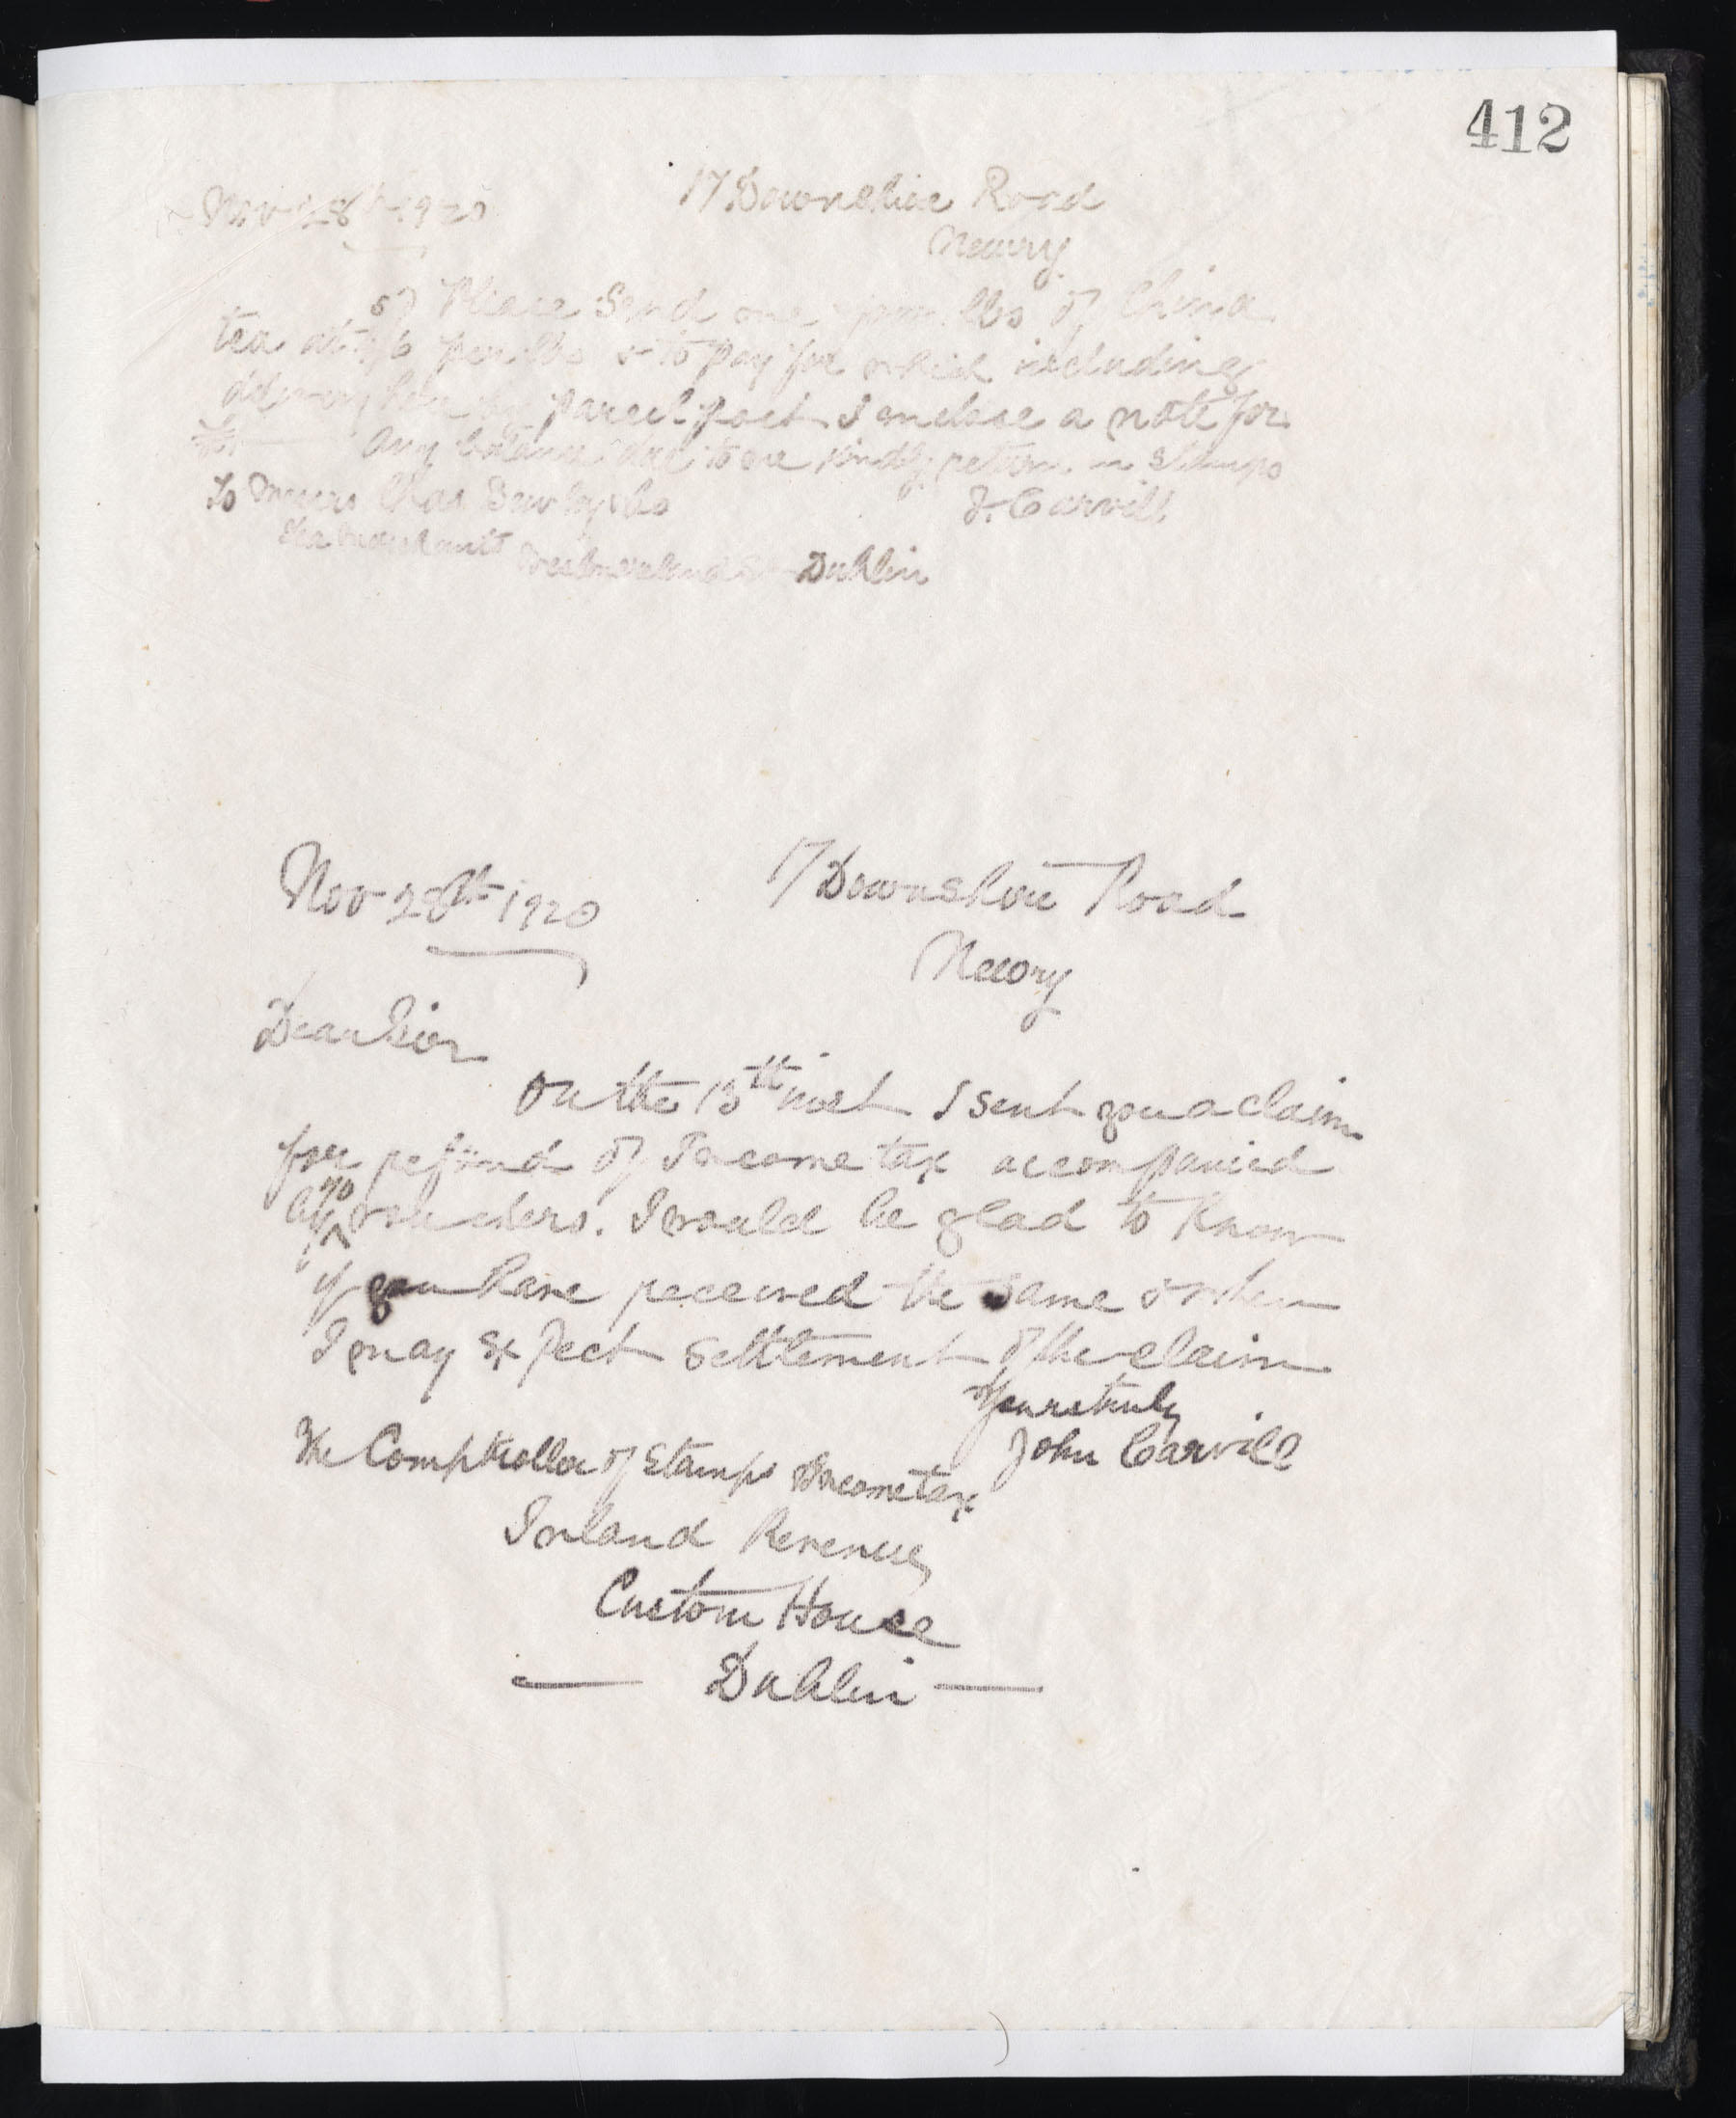 412
Nov 28th 1920
17 Downshire Road
Newry
Please Send me lbs of China
tea at per lb & to pay for which including
delivery here by parcel post I enclose a note for
Any balance due to me kindly return in stamps
J. Carvill
To Messrs Chas & Co
Tea Merchants Westmoreland St Dublin
Nov 28th 1920
17 Downshire Road
Newry
Dear Sir
On the 15th inst I sent you a claim
for refund of Income tax accompanied
by 70 vouchers. I would be glad to know
if you have received the same & when
I may expect settlement of the claim
Yours truly
John Carvill
The Comptroller of Stamps Income tax
Inland Revenue
Custom House
Dublin